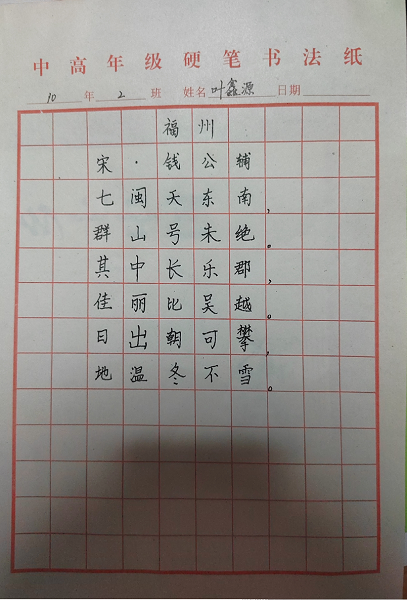 中高年级硬笔书法纸
10年2班 姓名叶鑫源 日期
福州
宋·钱公辅
七闽天东南，
群山号未绝。
其中长乐郡，
佳丽比吴越。
日出朝可攀，
地温冬不雪。